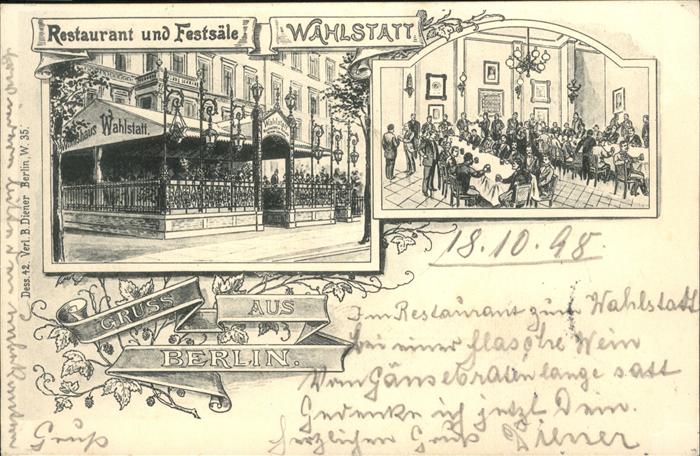 Restaurant und Festsäle
WAHLSTATT.
Wahlstatt.
Dess. 42. Verl. B. Diener Berlin, W. 35.
18.10.98.
GRUSS
AUS
BERLIN.
Im Restaurant zum Wahlstatt
bei einer flasche Wein
Vom Gänsebraten lange satt
Gedenke ich jetzt Dein.
Herzlichen Gruß Diener
Gruß